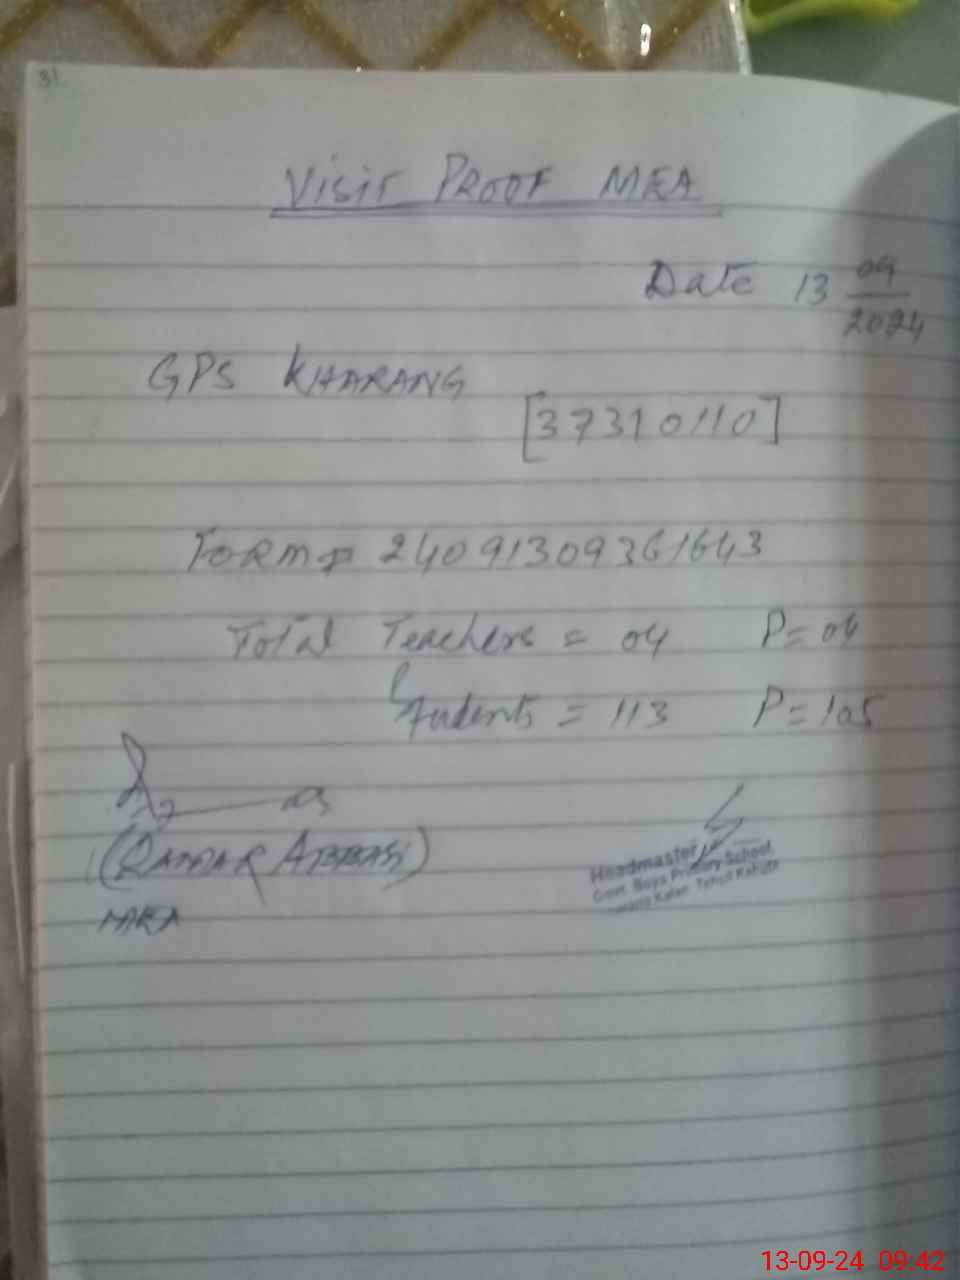 31
Visit Proof MEA
Date 13 09/2024
GPS KHARANG
[37310110]
Form # 24091309361643
Total Teachers = 04 P = 04
Students = 113 P = 105
(QAMAR ABBASI)
MEA
Headmaster
Govt. Boys Primary School,
Kalan Tehsil Kahuta
13-09-24 09:42